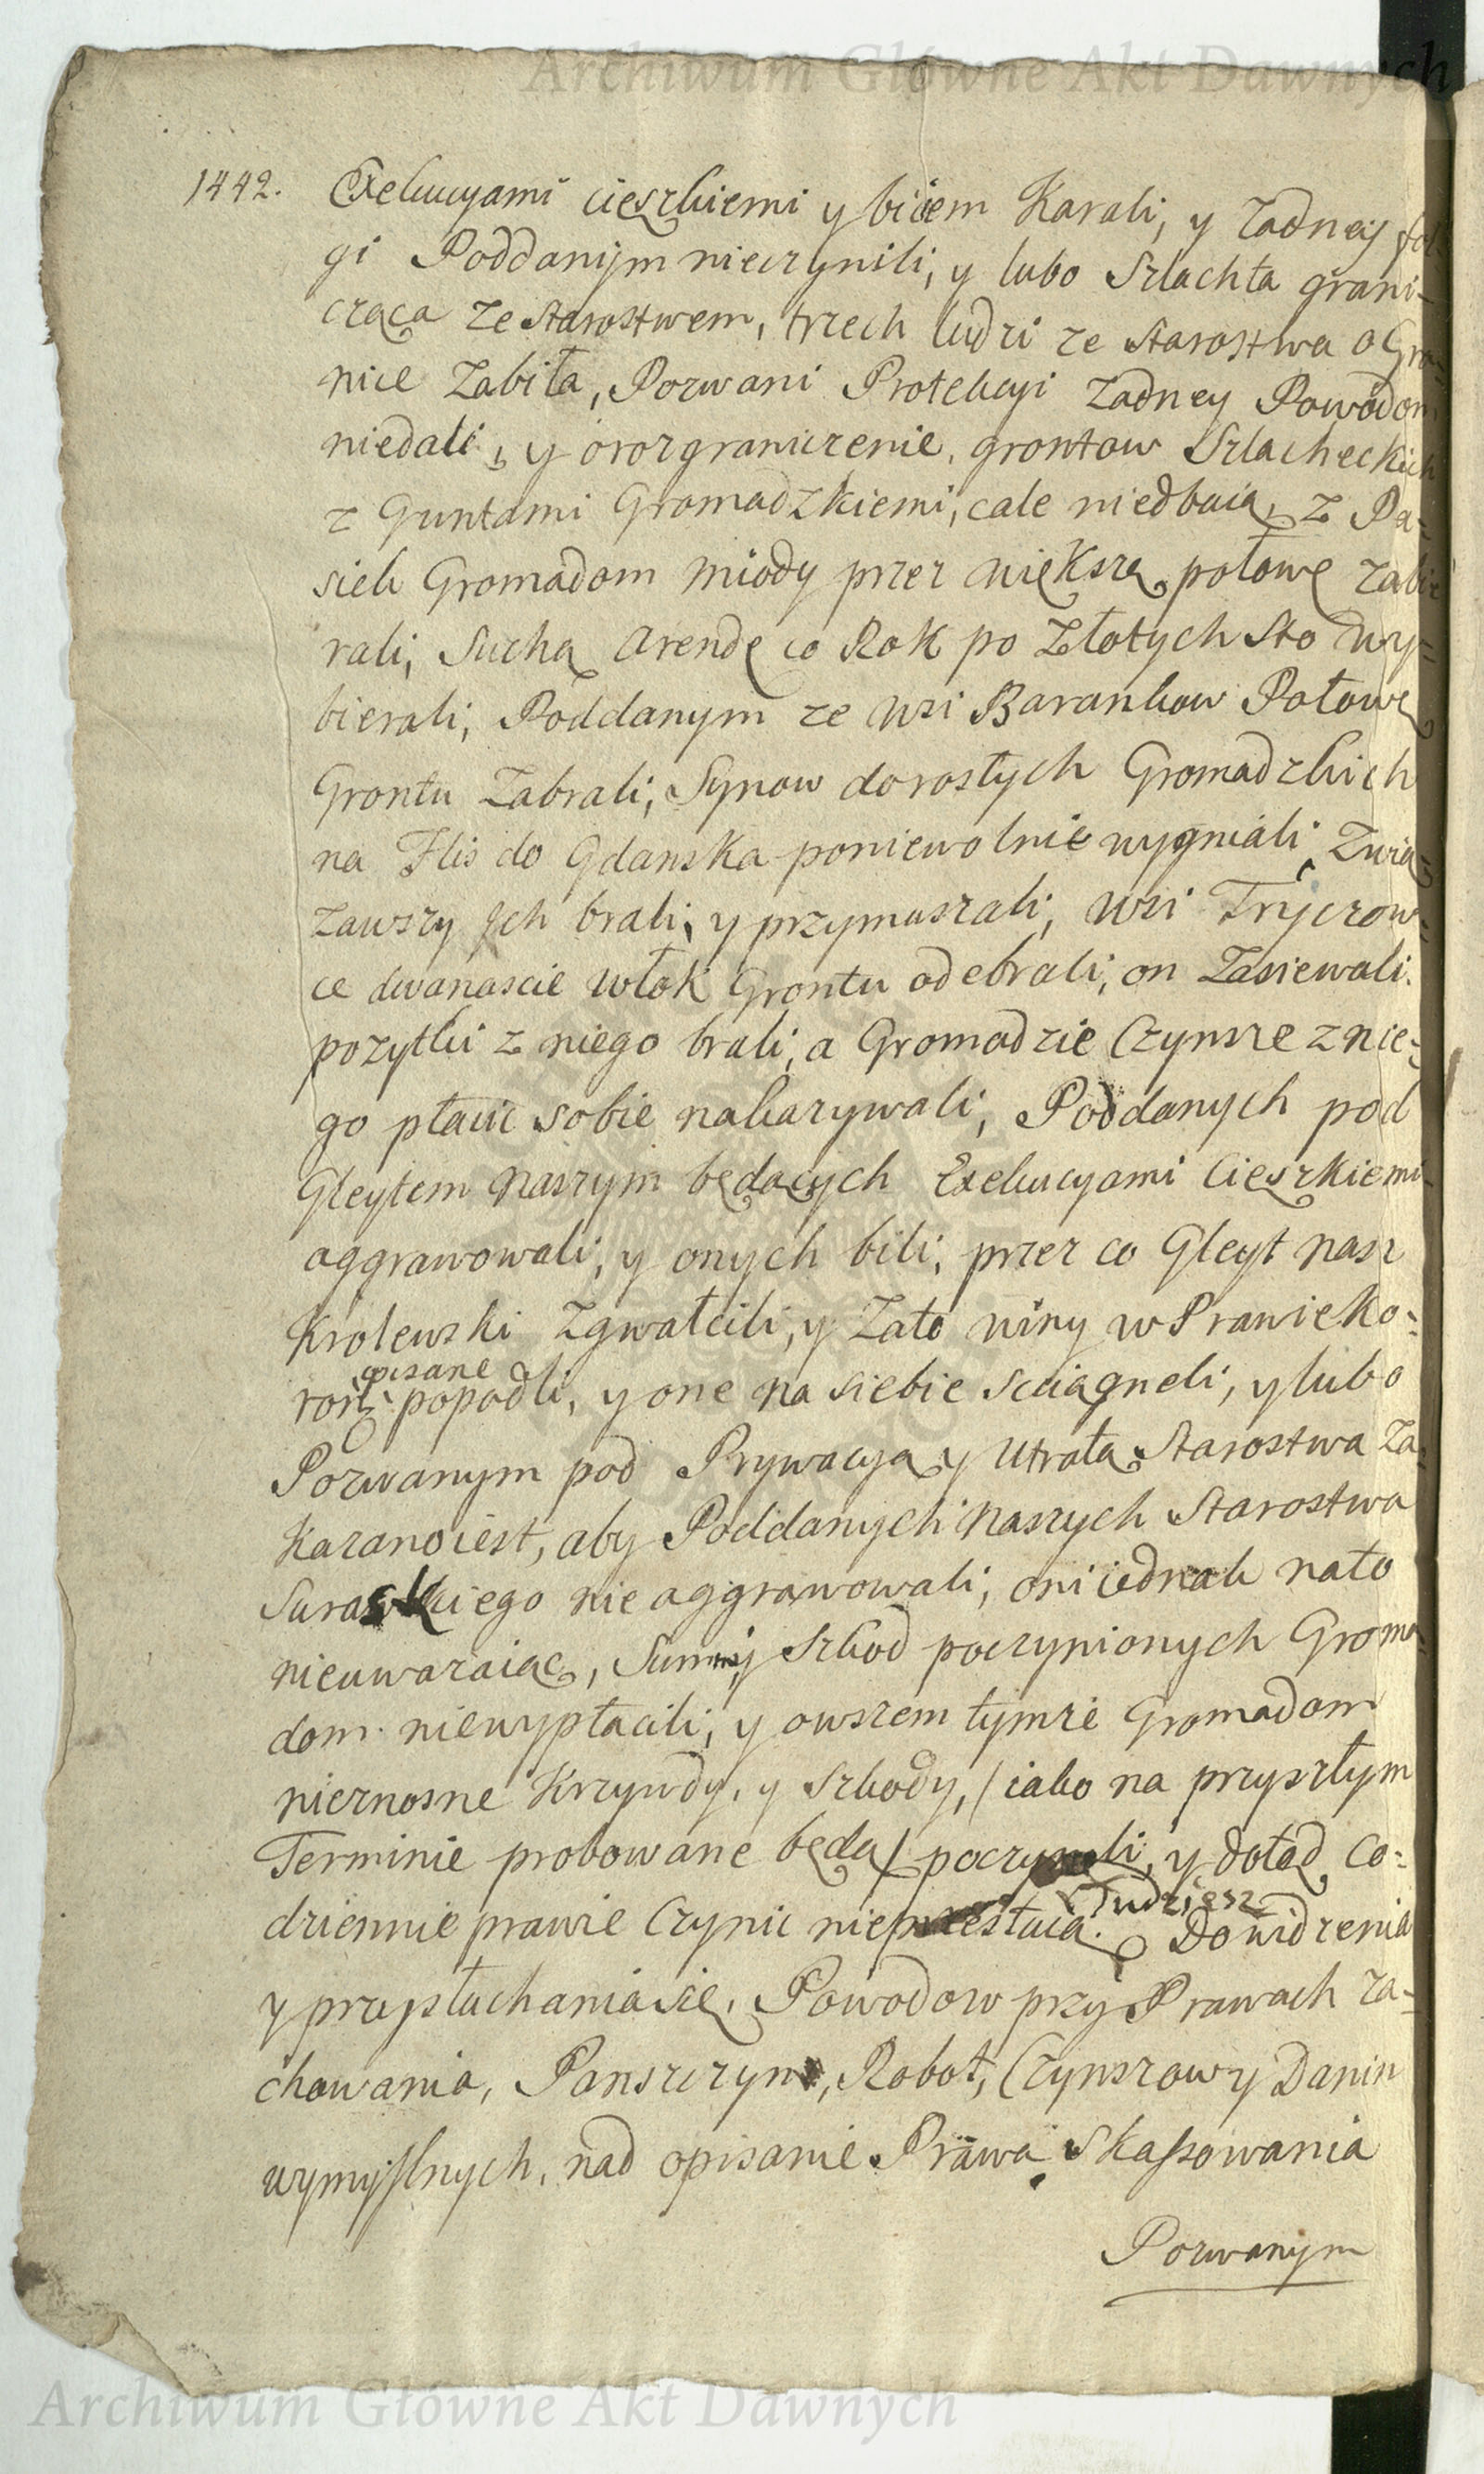 Archiwum Główne Akt Dawnych
1442. Exekucyami cięszkiemi y biciem Karali, y Zadney fol
gi Poddanym nieczynili, y lubo Szlachta grani-
cząca ze Starostwem, trzech ludzi ze Starostwa o Gra-
nice Zabiła, Pozwani Protekcyi Zadney Powodom
niedali, y o rozgraniczenie, grontow Szlacheckich
z Guntami Gromadzkiemi, cale niedbaią, z Pa-
siek Gromadom miody przez większą połowę zabie
rali, Suchą Arendę co Rok po Złotych Sto wy-
bierali, Poddanym ze wsi Barankow Połowę
Grontu Zabrali, Synow dorosłych Gromadzkich
na Flis do Gdanska poniewolnie wygniali, Zwią-
zawszy Ich brali, y przymuszali, wsi Tryczow-
ce dwanascie włok Grontu odebrali, on Zasiewali.
pozytki z niego brali, a Gromadzie Czynsze z nie-
go płacic sobie nakazywali, Poddanych pod
Gleytem Naszym będących Exekucyami Cięszkiemi
aggrawowali, y onych bili, przez co Gleyt nasz
Krolewski Zgwałcili, y Zato winy w Prawie Ko-
ron: opisane popadli, y one na siebie sciągneli, y lubo
Pozwanym pod Prywacyą y Utratą Starostwa Za-
Kazano iest, aby Poddanych Naszych Starostwa
Suraskiego nie aggrawowali, oni iednak nato
nieuwazaiąc, Summy Szkod poczynionych Groma-
dom niewypłacili, y owszem tymze Gromadom
nieznosne Krzywdy, y Szkody, / iako na przyszłym
Terminie probowane będą / poczyneli, y dotąd Co-
dziennie prawie Czynic nieprzestaią. Tudziesz Do widzenia
y przysłuchania się, Powodow przy Prawach za-
chowania, Panszczyn, Robot, Czynszow y Danin
wymyslnych, nad opisanie Prawa Skassowania
Pozwanym
Archiwum Główne Akt Dawnych